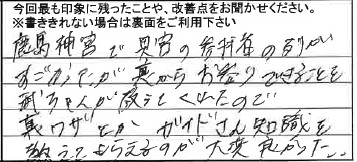 今回最も印象に残ったことや、改善点をお聞かせください。
※書ききれない場合は裏面をご利用下さい
鹿島神宮で奥宮の参拝者の列が
すごかったが裏からお参りできることを
ちゃんが教えてくれたので
裏ワザとかガイドさん知識を
教えてもらえるのが大変良かった。